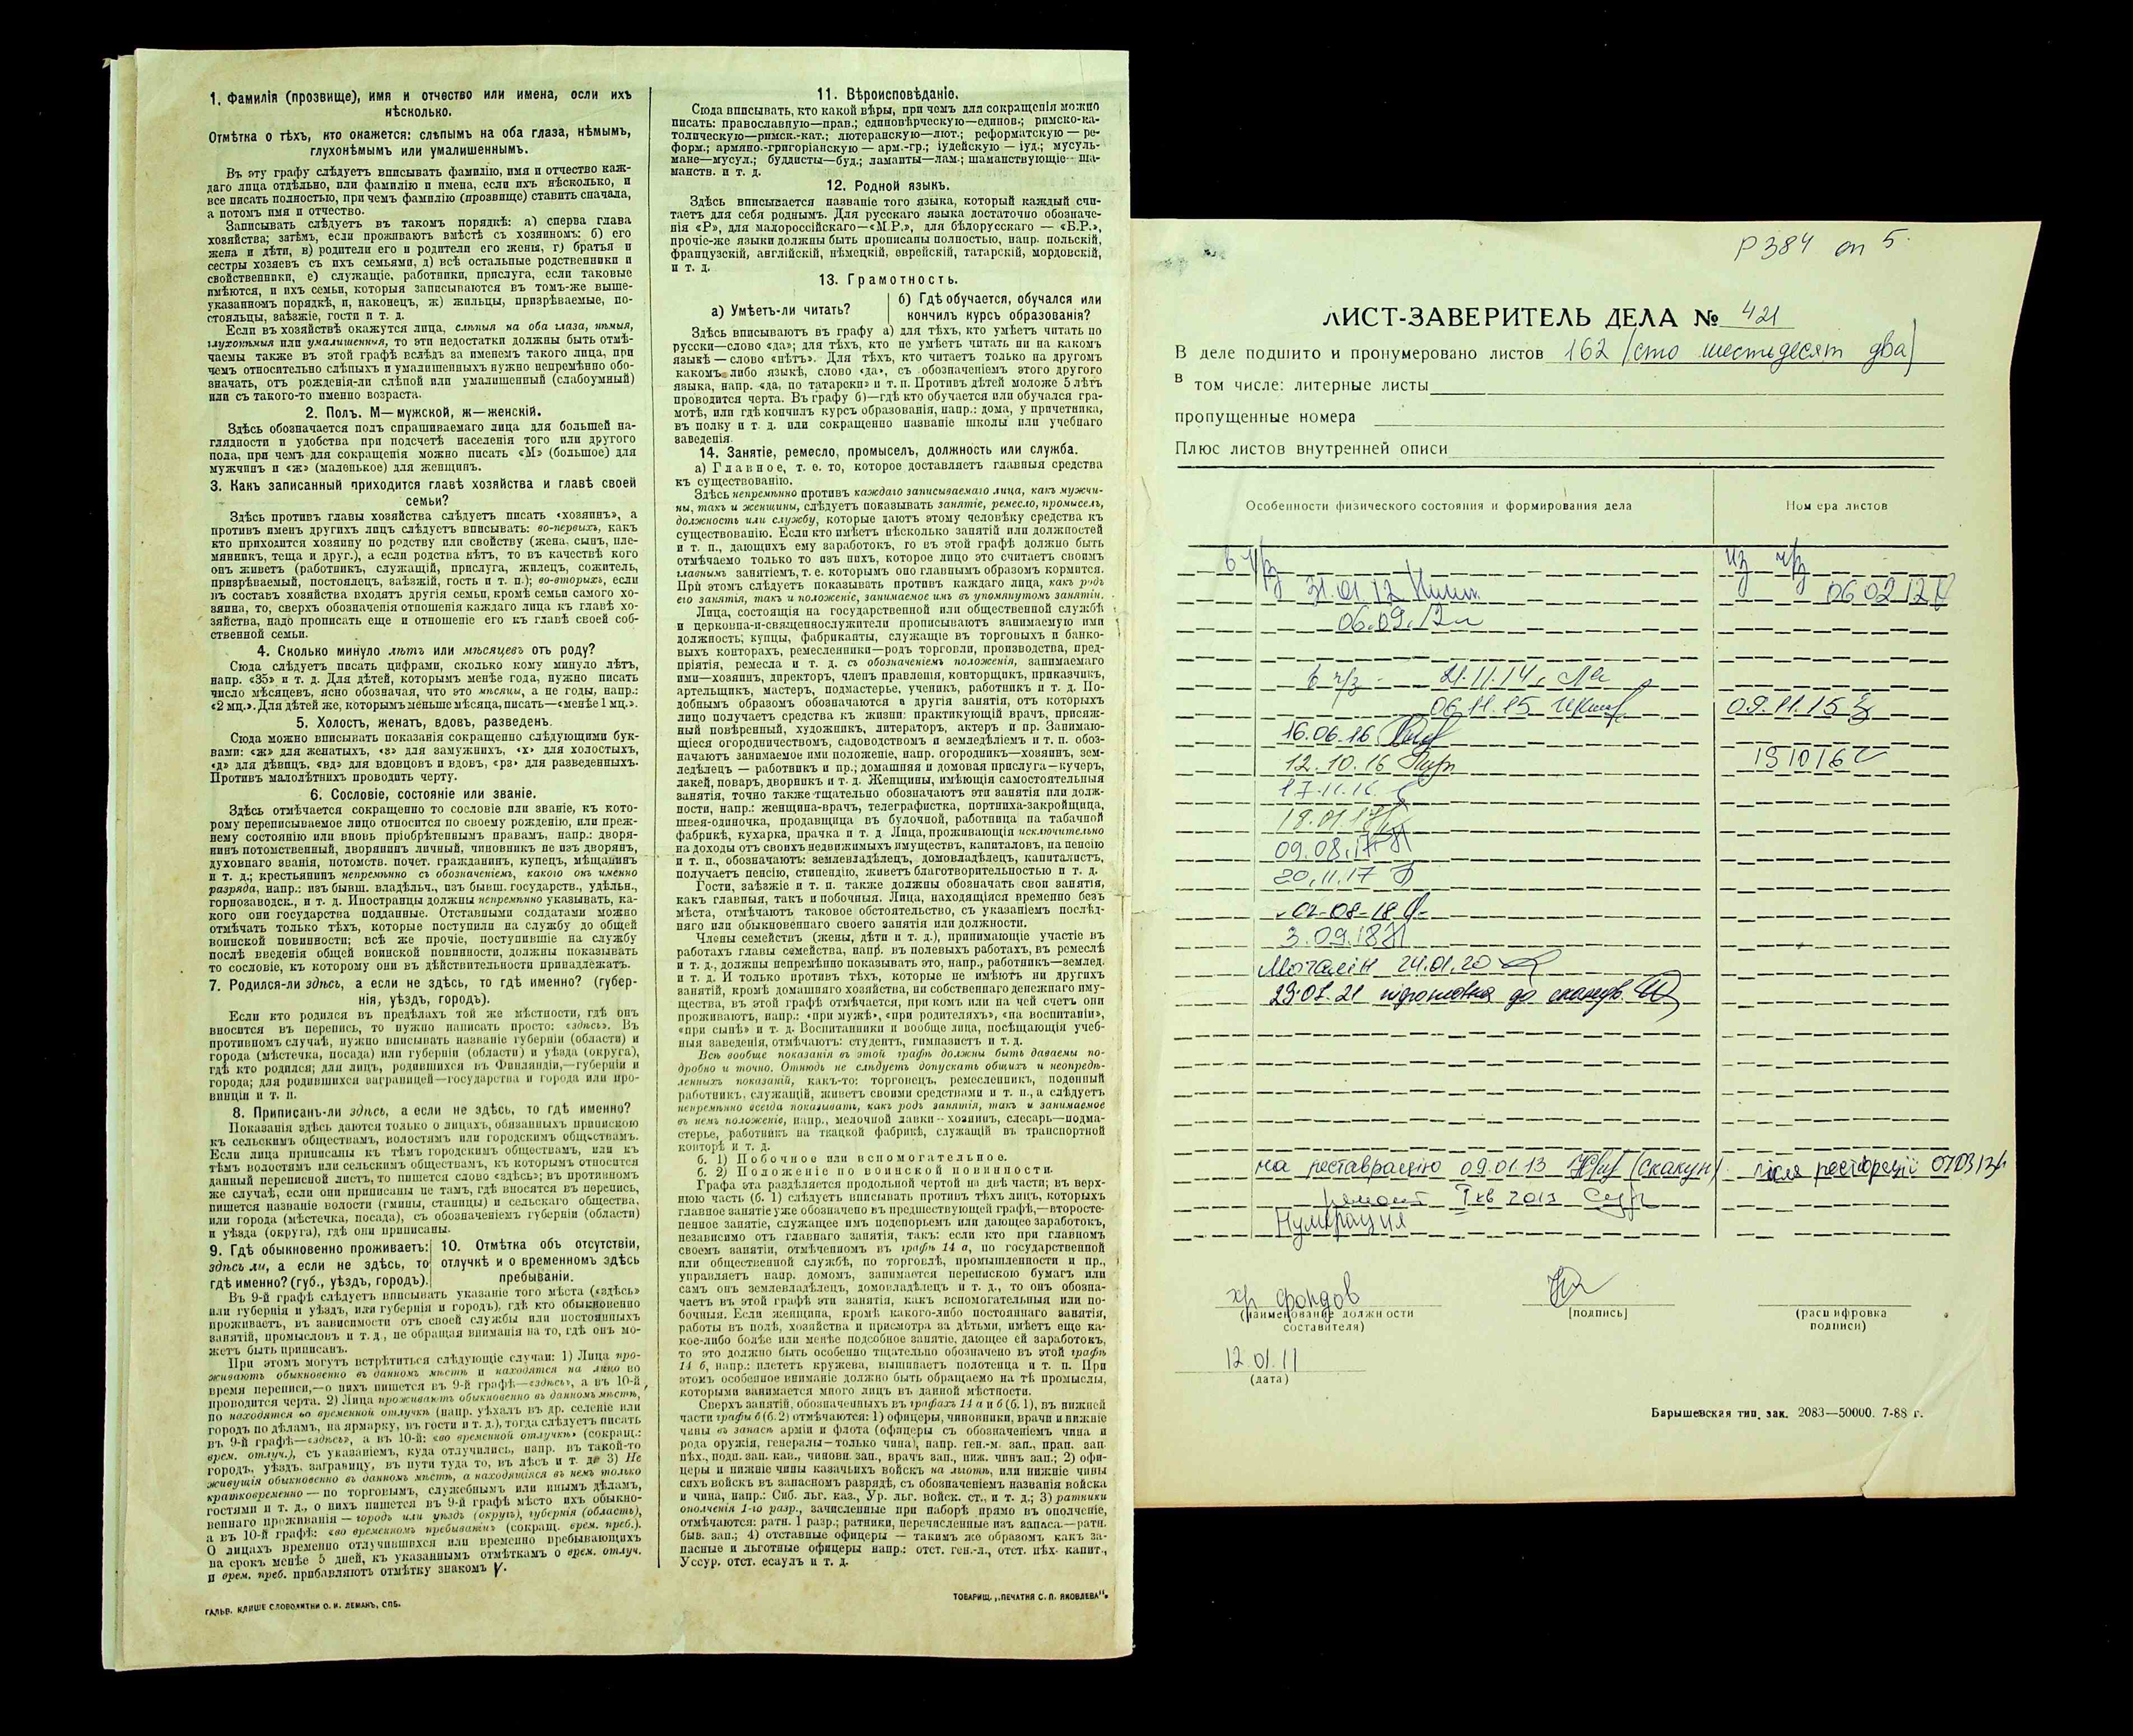 1. Фамилія (прозвище), имя и отчество или имена, если ихъ
нѣсколько.
Отмѣтка о тѣхъ, кто окажется: слѣпымъ на оба глаза, нѣмымъ,
глухонѣмымъ или умалишеннымъ.
Въ эту графу слѣдуетъ вписывать фамилію, имя и отчество каж-
даго лица отдѣльно, или фамилію и имена, если ихъ нѣсколько, и
все писать полностью, при чемъ фамилію (прозвище) ставить сначала,
а потомъ имя и отчество.
Записывать слѣдуетъ въ такомъ порядкѣ: а) сперва глава
хозяйства; затѣмъ, если проживаютъ вмѣстѣ съ хозяиномъ: б) его
жена и дѣти, в) родители его и родители его жены, г) братья и
сестры хозяевъ съ ихъ семьями, д) всѣ остальные родственники и
свойственники, е) служащіе, работники, прислуга, если таковые
имѣются, и ихъ семьи, которыя записываются въ томъ-же выше-
указанномъ порядкѣ, и, наконецъ, ж) жильцы, призрѣваемые, по-
стояльцы, заѣзжіе, гости и т. д.
Если въ хозяйствѣ окажутся лица, слѣпыя на оба глаза, нѣмыя,
глухонѣмыя или умалишенныя, то эти недостатки должны быть отмѣ-
чаемы также въ этой графѣ вслѣдъ за именемъ такого лица, при
чемъ относительно слѣпыхъ и умалишенныхъ нужно непремѣнно обо-
значать, отъ рожденія-ли слѣпой или умалишенный (слабоумный)
или съ такого-то именно возраста.
2. Полъ. М—мужской, ж—женскій.
Здѣсь обозначается полъ спрашиваемаго лица для большей на-
глядности и удобства при подсчетѣ населенія того или другого
пола, при чемъ для сокращенія можно писать «М» (большое) для
мужчинъ и «ж» (маленькое) для женщинъ.
3. Какъ записанный приходится главѣ хозяйства и главѣ своей
семьи?
Здѣсь противъ главы хозяйства слѣдуетъ писать «хозяинъ», а
противъ именъ другихъ лицъ слѣдуетъ вписывать: во-первыхъ, какъ
кто приходится хозяину по родству или свойству (жена, сынъ, пле-
мянникъ, теща и друг.), а если родства нѣтъ, то въ качествѣ кого
онъ живетъ (работникъ, служащій, прислуга, жилецъ, сожитель,
призрѣваемый, постоялецъ, заѣзжій, гость и т. п.); во-вторыхъ, если
въ составъ хозяйства входятъ другія семьи, кромѣ семьи самого хо-
зяина, то, сверхъ обозначенія отношенія каждаго лица къ главѣ хо-
зяйства, надо прописать еще и отношеніе его къ главѣ своей соб-
ственной семьи.
4. Сколько минуло лѣтъ или мѣсяцевъ отъ роду?
Сюда слѣдуетъ писать цифрами, сколько кому минуло лѣтъ,
напр. «35» и т. д. Для дѣтей, которымъ менѣе года, нужно писать
число мѣсяцевъ, ясно обозначая, что это мѣсяцы, а не годы, напр.:
«2 мц.». Для дѣтей же, которымъ меньше мѣсяца, писать—«менѣе 1 мц.».
5. Холостъ, женатъ, вдовъ, разведенъ.
Сюда можно вписывать показанія сокращенно слѣдующими бук-
вами: «ж» для женатыхъ, «з» для замужнихъ, «х» для холостыхъ,
«д» для дѣвицъ, «вд» для вдовцовъ и вдовъ, «рз» для разведенныхъ.
Противъ малолѣтнихъ проводить черту.
6. Сословіе, состояніе или званіе.
Здѣсь отмѣчается сокращенно то сословіе или званіе, къ кото-
рому переписываемое лицо относится по своему рожденію, или преж-
нему состоянію или вновь пріобрѣтеннымъ правамъ, напр.: дворя-
нинъ потомственный, дворянинъ личный, чиновникъ не изъ дворянъ,
духовнаго званія, потомств. почет. гражданинъ, купецъ, мѣщанинъ
и т. д.; крестьянинъ непремѣнно съ обозначеніемъ, какого онъ именно
разряда, напр.: изъ бывш. владѣльч., изъ бывш. государств., удѣльн.,
горнозаводск., и т. д. Иностранцы должны непремѣнно указывать, ка-
кого они государства подданные. Отставными солдатами можно
отмѣчать только тѣхъ, которые поступили на службу до общей
воинской повинности; всѣ же прочіе, поступившіе на службу
послѣ введенія общей воинской повинности, должны показывать
то сословіе, къ которому они въ дѣйствительности принадлежатъ.
7. Родился-ли здѣсь, а если не здѣсь, то гдѣ именно? (губер-
нія, уѣздъ, городъ).
Если кто родился въ предѣлахъ той же мѣстности, гдѣ онъ
вносится въ перепись, то нужно написать просто: «здѣсь». Въ
противномъ случаѣ, нужно вписывать названіе губерніи (области) и
города (мѣстечка, посада) или губерніи (области) и уѣзда (округа),
гдѣ кто родился; для лицъ, родившихся въ Финляндіи,—губерніи и
города; для родившихся заграницей—государства и города или про-
винціи и т. п.
8. Приписанъ-ли здѣсь, а если не здѣсь, то гдѣ именно?
Показанія здѣсь даются только о лицахъ, обязанныхъ припискою
къ сельскимъ обществамъ, волостямъ или городскимъ обществамъ.
Если лица приписаны къ тѣмъ городскимъ обществамъ, или къ
тѣмъ волостямъ или сельскимъ обществамъ, къ которымъ относится
данный переписной листъ, то пишется слово «здѣсь»; въ противномъ
же случаѣ, если они приписаны не тамъ, гдѣ вносятся въ перепись,
пишется названіе волости (гмины, станицы) и сельскаго общества,
или города (мѣстечка, посада), съ обозначеніемъ губерніи (области)
и уѣзда (округа), гдѣ они приписаны.
9. Гдѣ обыкновенно проживаетъ:
здѣсь ли, а если не здѣсь, то
гдѣ именно? (губ., уѣздъ, городъ).
10. Отмѣтка объ отсутствіи,
отлучкѣ и о временномъ здѣсь
пребываніи.
Въ 9-й графѣ слѣдуетъ вписывать указаніе того мѣста («здѣсь»
или губернія и уѣздъ, или губернія и городъ), гдѣ кто обыкновенно
проживаетъ, въ зависимости отъ своей службы или постоянныхъ
занятій, промысловъ и т. д., не обращая вниманія на то, гдѣ онъ мо-
жетъ быть приписанъ.
При этомъ могутъ встрѣтиться слѣдующіе случаи: 1) Лица про-
живаютъ обыкновенно въ данномъ мѣстѣ и находятся на лицо во
время переписи,—о нихъ пишется въ 9-й графѣ—«здѣсь», а въ 10-й
проводится черта. 2) Лица проживаютъ обыкновенно въ данномъ мѣстѣ,
но находятся во временной отлучкѣ (напр. уѣхалъ въ др. селеніе или
городъ по дѣламъ, на ярмарку, въ гости и т. д.), тогда слѣдуетъ писать
въ 9-й графѣ—«здѣсь», а въ 10-й: «во временной отлучкѣ» (сокращ.:
врем. отлуч.), съ указаніемъ, куда отлучились, напр. въ такой-то
городъ, уѣздъ, заграницу, въ пути туда то, въ лѣсъ и т. д. 3) Не
живущія обыкновенно въ данномъ мѣстѣ, а находящіяся въ немъ только
кратковременно—по торговымъ, служебнымъ или инымъ дѣламъ,
гостями и т. д., о нихъ пишется въ 9-й графѣ мѣсто ихъ обыкно-
веннаго проживанія—городъ или уѣздъ (округъ), губернія (область),
а въ 10-й графѣ: «во временномъ пребываніи» (сокращ. врем. преб.).
О лицахъ временно отлучившихся или временно пребывающихъ
на срокъ менѣе 5 дней, къ указаннымъ отмѣткамъ о врем. отлуч.
и врем. преб. прибавляютъ отмѣтку знакомъ V.
ГАЛЬВ. КЛИШЕ СЛОВОЛИТНИ О. И. ЛЕМАНЪ, СПБ.
11. Вѣроисповѣданіе.
Сюда вписывать, кто какой вѣры, при чемъ для сокращенія можно
писать: православную—прав.; единовѣрческую—единов.; римско-ка-
толическую—римск.-кат.; лютеранскую—лют.; реформатскую—ре-
форм.; армяно.-григоріанскую—арм.-гр.; іудейскую—іуд.; мусуль-
мане—мусул.; буддисты—буд.; ламаиты—лам.; шаманствующіе—ша-
манств. и т. д.
12. Родной языкъ.
Здѣсь вписывается названіе того языка, который каждый счи-
таетъ для себя роднымъ. Для русскаго языка достаточно обозначе-
нія «Р», для малороссійскаго—«М.Р.», для бѣлорусскаго — «Б.Р.»,
прочіе-же языки должны быть прописаны полностью, напр. польскій,
французскій, англійскій, нѣмецкій, еврейскій, татарскій, мордовскій,
и т. д.
13. Грамотность.
а) Умѣетъ-ли читать?
б) Гдѣ обучается, обучался или
кончилъ курсъ образованія?
Здѣсь вписываютъ въ графу а) для тѣхъ, кто умѣетъ читать по
русски—слово «да»; для тѣхъ, кто не умѣетъ читать ни на какомъ
языкѣ — слово «нѣтъ». Для тѣхъ, кто читаетъ только на другомъ
какомъ либо языкѣ, слово «да», съ обозначеніемъ этого другого
языка, напр. «да, по татарски» и т. п. Противъ дѣтей моложе 5 лѣтъ
проводится черта. Въ графу б)—гдѣ кто обучается или обучался гра-
мотѣ, или гдѣ кончилъ курсъ образованія, напр.: дома, у причетника,
въ полку и т. д. или сокращенно названіе школы или учебнаго
заведенія.
14. Занятіе, ремесло, промыселъ, должность или служба.
а) Главное, т. е. то, которое доставляетъ главныя средства
къ существованію.
Здѣсь непремѣнно противъ каждаго записываемаго лица, какъ мужчи-
ны, такъ и женщины, слѣдуетъ показывать занятіе, ремесло, промыселъ,
должность или службу, которые даютъ этому человѣку средства къ
существованію. Если кто имѣетъ нѣсколько занятій или должностей
и т. п., дающихъ ему заработокъ, то въ этой графѣ должно быть
отмѣчаемо только то изъ нихъ, которое лицо это считаетъ своимъ
главнымъ занятіемъ, т. е. которымъ оно главнымъ образомъ кормится.
При этомъ слѣдуетъ показывать противъ каждаго лица, какъ родъ
его занятія, такъ и положеніе, занимаемое имъ въ упомянутомъ занятіи.
Лица, состоящія на государственной или общественной службѣ
и церковна-и-священнослужители прописываютъ занимаемую ими
должность; купцы, фабриканты, служащіе въ торговыхъ и банко-
выхъ конторахъ, ремесленники—родъ торговли, производства, пред-
пріятія, ремесла и т. д. съ обозначеніемъ положенія, занимаемаго
ими—хозяинъ, директоръ, членъ правленія, конторщикъ, приказчикъ,
артельщикъ, мастеръ, подмастерье, ученикъ, работникъ и т. д. По-
добнымъ образомъ обозначаются и другія занятія, отъ которыхъ
лицо получаетъ средства къ жизни: практикующій врачъ, присяж-
ный повѣренный, художникъ, литераторъ, актеръ и пр. Занимаю-
щіеся огородничествомъ, садоводствомъ и земледѣліемъ и т. п. обоз-
начаютъ занимаемое ими положеніе, напр. огородникъ—хозяинъ, зем-
ледѣлецъ — работникъ и пр.; домашняя и домовая прислуга—кучеръ,
лакей, поваръ, дворникъ и т. д. Женщины, имѣющія самостоятельныя
занятія, точно также тщательно обозначаютъ эти занятія или долж-
ности, напр.: женщина-врачъ, телеграфистка, портниха-закройщица,
швея-одиночка, продавщица въ булочной, работница на табачной
фабрикѣ, кухарка, прачка и т. д. Лица, проживающія исключительно
на доходы отъ своихъ недвижимыхъ имуществъ, капиталовъ, на пенсію
и т. п., обозначаютъ: землевладѣлецъ, домовладѣлецъ, капиталистъ,
получаетъ пенсію, стипендію, живетъ благотворительностью и т. д.
Гости, заѣзжіе и т. п. также должны обозначать свои занятія,
какъ главныя, такъ и побочныя. Лица, находящіяся временно безъ
мѣста, отмѣчаютъ таковое обстоятельство, съ указаніемъ послѣд-
няго или обыкновеннаго своего занятія или должности.
Члены семействъ (жены, дѣти и т. д.), принимающіе участіе въ
работахъ главы семейства, напр. въ полевыхъ работахъ, въ ремеслѣ
и т. д., должны непремѣнно показывать это, напр., работникъ—землед.
и т. д. И только противъ тѣхъ, которые не имѣютъ ни другихъ
занятій, кромѣ домашняго хозяйства, ни собственнаго денежнаго иму-
щества, въ этой графѣ отмѣчается, при комъ или на чей счетъ они
проживаютъ, напр.: «при мужѣ», «при родителяхъ», «на воспитаніи»,
«при сынѣ» и т. д. Воспитанники и вообще лица, посѣщающія учеб-
ныя заведенія, отмѣчаютъ: студентъ, гимназистъ и т. д.
Всѣ вообще показанія въ этой графѣ должны быть даваемы по-
дробно и точно. Отнюдь не слѣдуетъ допускать общихъ и неопредѣ-
ленныхъ показаній, какъ-то: торговецъ, ремесленникъ, поденный
работникъ, служащій, живетъ своими средствами и т. п., а слѣдуетъ
непремѣнно всегда показывать, какъ родъ занятія, такъ и занимаемое
въ немъ положеніе, напр., мелочной лавки—хозяинъ, слесарь—подма-
стерье, работникъ на ткацкой фабрикѣ, служащій въ транспортной
конторѣ и т. д.
б. 1) Побочное или вспомогательное.
б. 2) Положеніе по воинской повинности.
Графа эта раздѣляется продольной чертой на двѣ части; въ верх-
нюю часть (б. 1) слѣдуетъ вписывать противъ тѣхъ лицъ, которыхъ
главное занятіе уже обозначено въ предшествующей графѣ,—второсте-
пенное занятіе, служащее имъ подспорьемъ или дающее заработокъ,
независимо отъ главнаго занятія, такъ: если кто при главномъ
своемъ занятіи, отмѣченномъ въ графѣ 14 а, по государственной
или общественной службѣ, по торговлѣ, промышленности и пр.,
управляетъ напр. домомъ, занимается перепискою бумагъ или
самъ онъ землевладѣлецъ, домовладѣлецъ и т. д., то онъ обозна-
чаетъ въ этой графѣ эти занятія, какъ вспомогательныя или по-
бочныя. Если женщина, кромѣ какого-либо постояннаго занятія,
работы въ полѣ, хозяйства и присмотра за дѣтьми, имѣетъ еще ка-
кое-либо болѣе или менѣе подсобное занятіе, дающее ей заработокъ,
то это должно быть особенно тщательно обозначено въ этой графѣ
14 б, напр.: плететъ кружева, вышиваетъ полотенца и т. п. При
этомъ особенное вниманіе должно быть обращаемо на тѣ промыслы,
которыми занимается много лицъ въ данной мѣстности.
Сверхъ занятій, обозначенныхъ въ графахъ 14 а и б (б. 1), въ нижней
части графы б (б. 2) отмѣчаются: 1) офицеры, чиновники, врачи и нижніе
чины въ запасѣ арміи и флота (офицеры съ обозначеніемъ чина и
рода оружія, генералы—только чина), напр. ген.-м. зап., прап. зап.
пѣх., подп. зап. кав., чиновн. зап., врачъ зап., ниж. чинъ зап.; 2) офи-
церы и нижніе чины казачьихъ войскъ на льготѣ, или нижніе чины
сихъ войскъ въ запасномъ разрядѣ, съ обозначеніемъ названія войска
и чина, напр.: Сиб. льг. каз., Ур. льг. войск. ст., и т. д.; 3) ратники
ополченія 1-го разр., зачисленные при наборѣ прямо въ ополченіе,
отмѣчаются: ратн. 1 разр.; ратники, перечисленные изъ запаса.—ратн.
быв. зап.; 4) отставные офицеры — такимъ же образомъ какъ за-
пасные и льготные офицеры напр.: отст. ген.-л., отст. пѣх. капит.,
Уссур. отст. есаулъ и т. д.
ТОВАРИЩ. „ПЕЧАТНЯ С. П. ЯКОВЛЕВА“.
Р 384 оп 5
ЛИСТ-ЗАВЕРИТЕЛЬ ДЕЛА № 421
В деле подшито и пронумеровано листов 162 (сто шестьдесят два)
в том числе: литерные листы
пропущенные номера
Плюс листов внутренней описи
Особенности физического состояния и формирования дела
Номера листов
в ч/з
из ч/з
31.01.12
06 02 12
06.09.12
в ч/з - 21.11.14
06.11.15
09.11.15
16.06.16
12.10.16
191016
17.11.16
18.01.17
09.08.17
20.11.17
02-08-18
3.09.18
24.01.20
29.01.21 підготовка до сканув.
на реставрацію 09.01.13 (Скакун)
після реставрації 070313
ремонт I кв 2013
Нумерация
хр фондов
(наименование должности
составителя)
[подпись]
(расшифровка
подписи)
12.01.11
(дата)
Барышевская тип. зак. 2083—50000. 7-88 г.